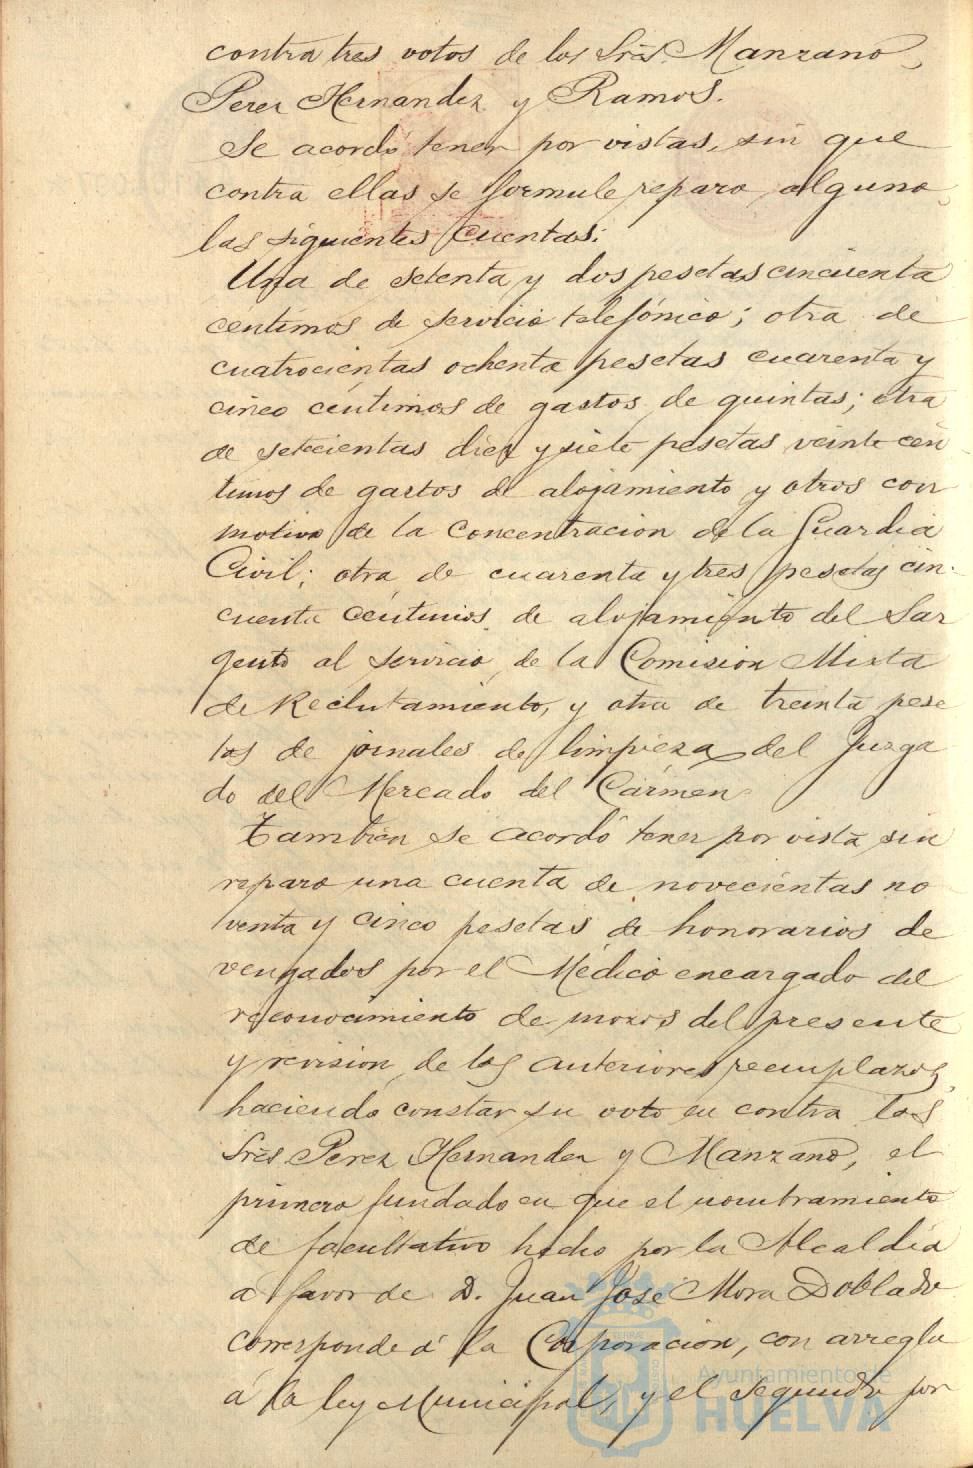 contra tres votos de los Sres. Manzano,
Perez Hernandez y Ramos.
Se acordó tener por vistas, sin que
contra ellas se formule reparo alguno,
las siguientes cuentas:
Una de setenta y dos pesetas cincuenta
centimos de servicio telefónico; otra de
cuatrocientas ochenta pesetas cuarenta y
cinco céntimos de gastos de quintas; otra
de setecientas diez y siete pesetas veinte cén
timos de gastos de alojamiento y otros con
motivo de la concentracion de la Guardia
Civil; otra de cuarenta y tres pesetas cin-
cuenta céntimos de alojamiento del Sar
gento al servicio de la Comision Mixta
de Reclutamiento, y otra de treinta pese
tas de jornales de limpieza del Juzga
do del Mercado del Cármen
Tambien se acordó tener por vista sin
reparo una cuenta de novecientas no
venta y cinco pesetas de honorarios de
vengados por el Médico encargado del
reconocimiento de mozos del presente
y revision de los anteriores reemplazos,
haciendo constar su voto en contra los
Sres. Perez Hernandez y Manzano, el
primero fundado en que el nombramiento
de facultativo hecho por la Alcaldia
a favor de D. Juan José Mora Doblado
corresponde á la Corporacion, con arreglo
á la ley Municipal, y el segundo por
Ayuntamiento de
HUELVA